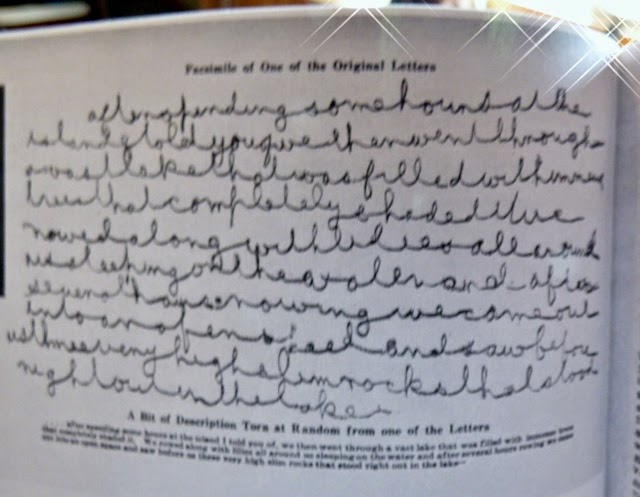 Facsimile of One of the Original Letters
after spending some hours at the
island I told you of we then went through
a vast lake that was filled with immense
trees that completely shaded it we
rowed along with lilies all around
us sleeping on the water and after
several hours rowing we came out
into an open space and saw before
us these very high slim rocks that stood
right out in the lake
A Bit of Description Torn at Random from one of the Letters
after spending some hours at the island I told you of, we then went through a vast lake that was filled with immense trees
that completely shaded it. We rowed along with lilies all around us sleeping on the water and after several hours rowing we came
out into an open space and saw before us these very high slim rocks that stood right out in the lake—